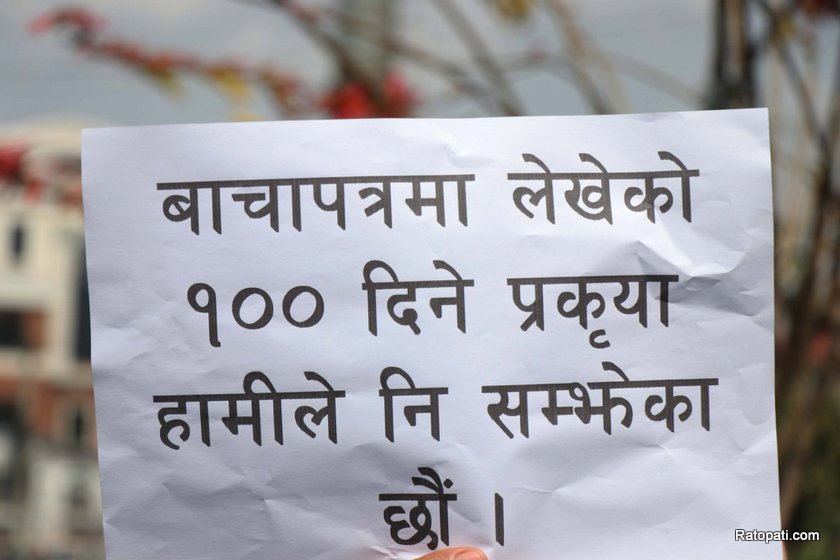 बाचापत्रमा लेखेको
१०० दिने प्रकृया
हामीले नि सम्झेका
छौं ।
Ratopati.com